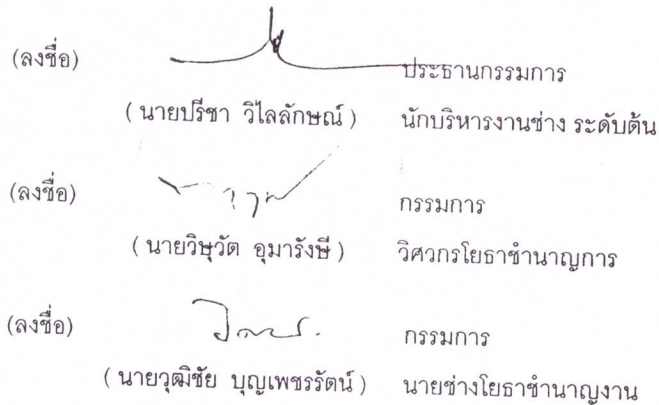 (ลงชื่อ) ประธานกรรมการ
( นายปรีชา วิไลลักษณ์ ) นักบริหารงานช่าง ระดับต้น
(ลงชื่อ) กรรมการ
( นายวิษุวัต อุมารังษี ) วิศวกรโยธาชำนาญการ
(ลงชื่อ) กรรมการ
( นายวุฒิชัย บุญเพชรรัตน์ ) นายช่างโยธาชำนาญงาน